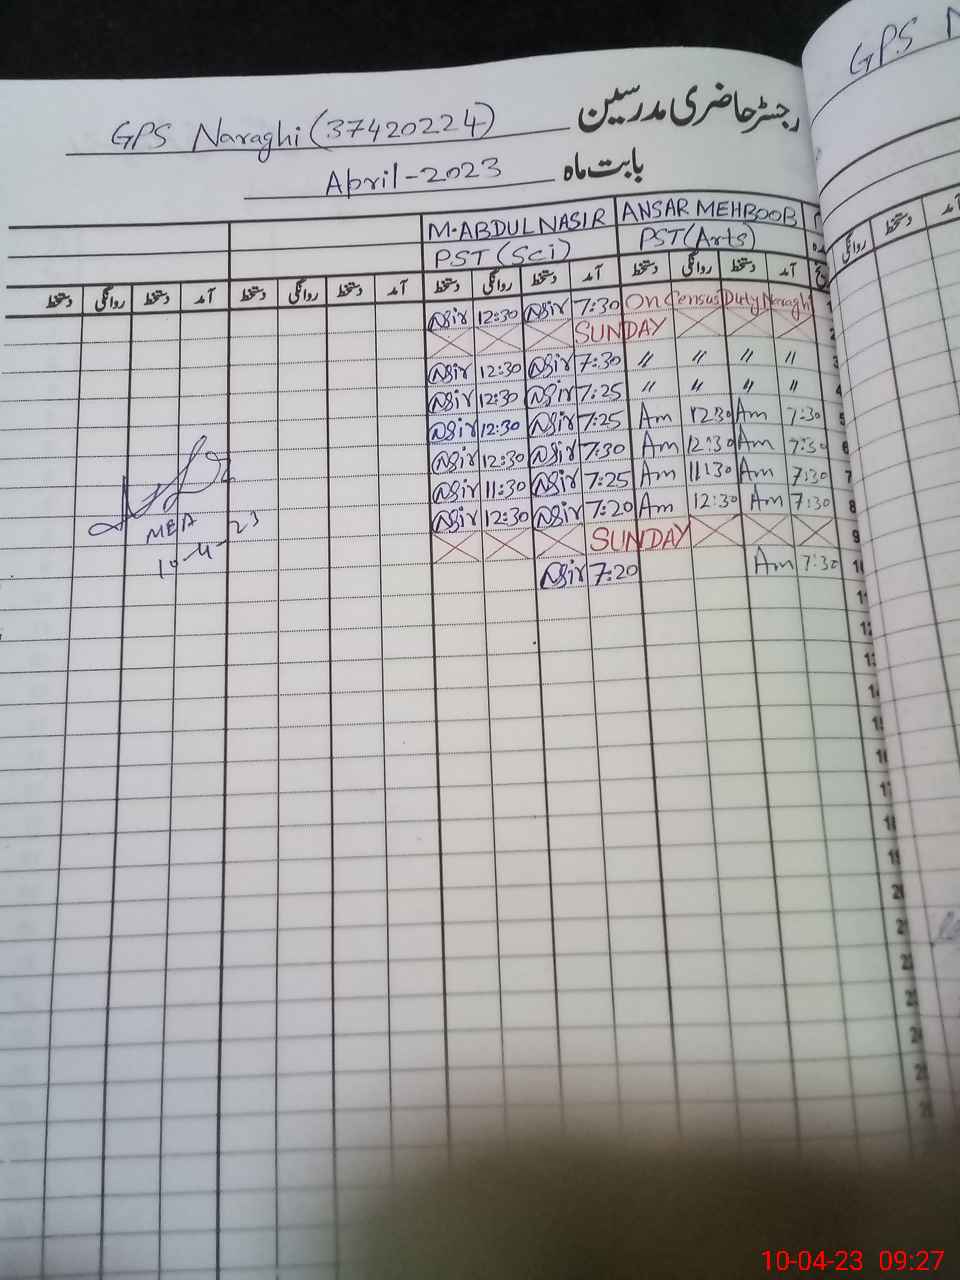 GPS N
GPS Naraghi (37420224) رجسٹر حاضری مدرسین
April-2023 بابت ماہ
M.ABDUL NASIR ANSAR MEHBOOB
PST (Sci) PST (Arts)
دستخط روانگی دستخط آمد دستخط روانگی دستخط آمد دستخط روانگی دستخط آمد دستخط روانگی دستخط آمد روانگی دستخط آمد
Nasir 12:30 Nasir 7:30 On Census Duty Naraghi 1
SUNDAY 2
Nasir 12:30 Nasir 7:30 〃 〃 〃 〃 3
Nasir 12:30 Nasir 7:25 〃 〃 〃 〃 4
Nasir 12:30 Nasir 7:25 Am 12:30 Am 7:30 5
Nasir 12:30 Nasir 7:30 Am 12:30 Am 7:30 6
Nasir 11:30 Nasir 7:25 Am 11:30 Am 7:30 7
Nasir 12:30 Nasir 7:20 Am 12:30 Am 7:30 8
SUNDAY 9
Nasir 7:20 Am 7:30 10
MEA
10-4-23
11
12
13
14
15
16
17
18
19
20
21
22
23
24
25
26
10-04-23 09:27